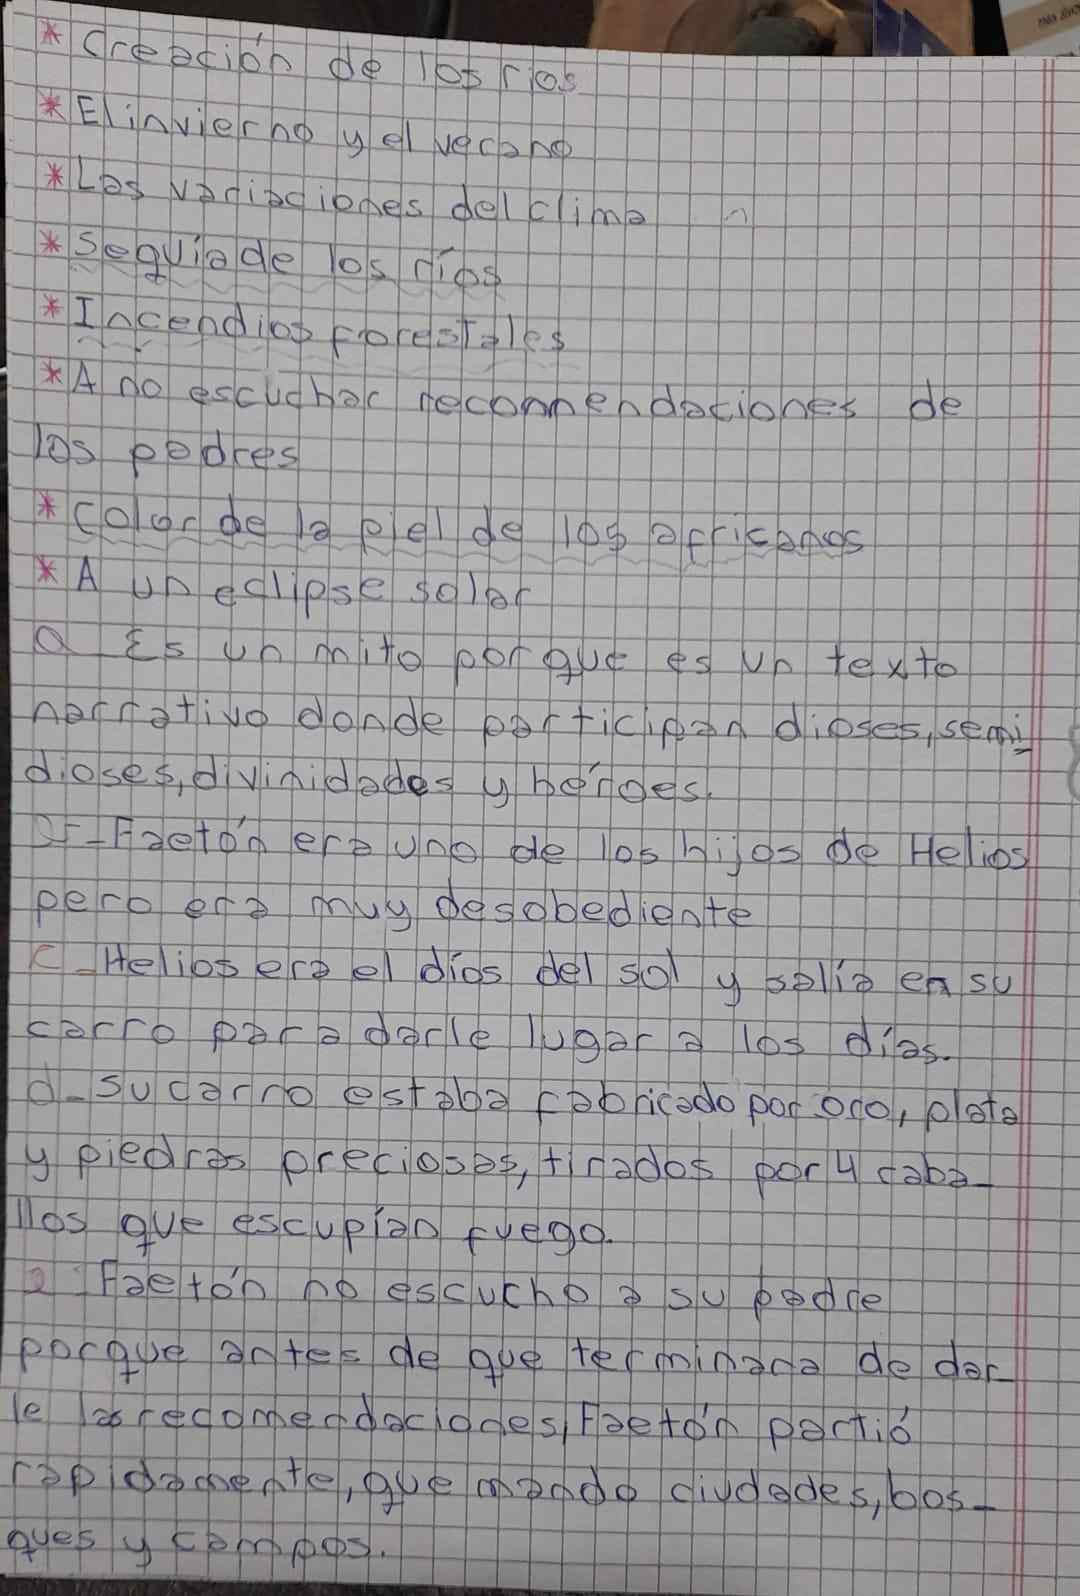 * Creación de los rios
* El invierno y el verano
* Las variaciones del clima
* sequia de los ríos
* Incendios forestales
* A no escuchar recomendaciones de
los padres
* Color de la piel de los africanos
* A un eclipse solar
a Es un mito porque es un texto
narrativo donde participan dioses, semi
dioses, divinidades y héroes.
b-Faetón era uno de los hijos de Helios
pero era muy desobediente
c-Helios era el díos del sol y salía en su
carro para darle lugar a los días.
d-su carro estaba fabricado por oro, plata
y piedras preciosas, tirados por 4 caba-
llos que escupían fuego.
e Faetón no escucho a su padre
porque antes de que terminara de dar
le las recomendaciones, Faetón partió
rapidamente, que mando ciudades, bos-
ques y campos.